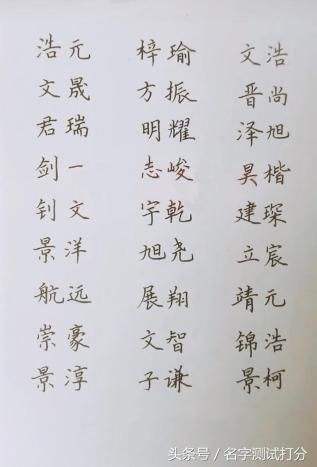 浩元 梓瑜 文浩
文晟 方振 晋尚
君瑞 明耀 泽旭
剑一 志峻 昊楷
钊文 宇乾 建琛
景洋 旭尧 立宸
航远 展翔 靖元
崇豪 文智 锦浩
景淳 子谦 景柯
头条号 / 名字测试打分